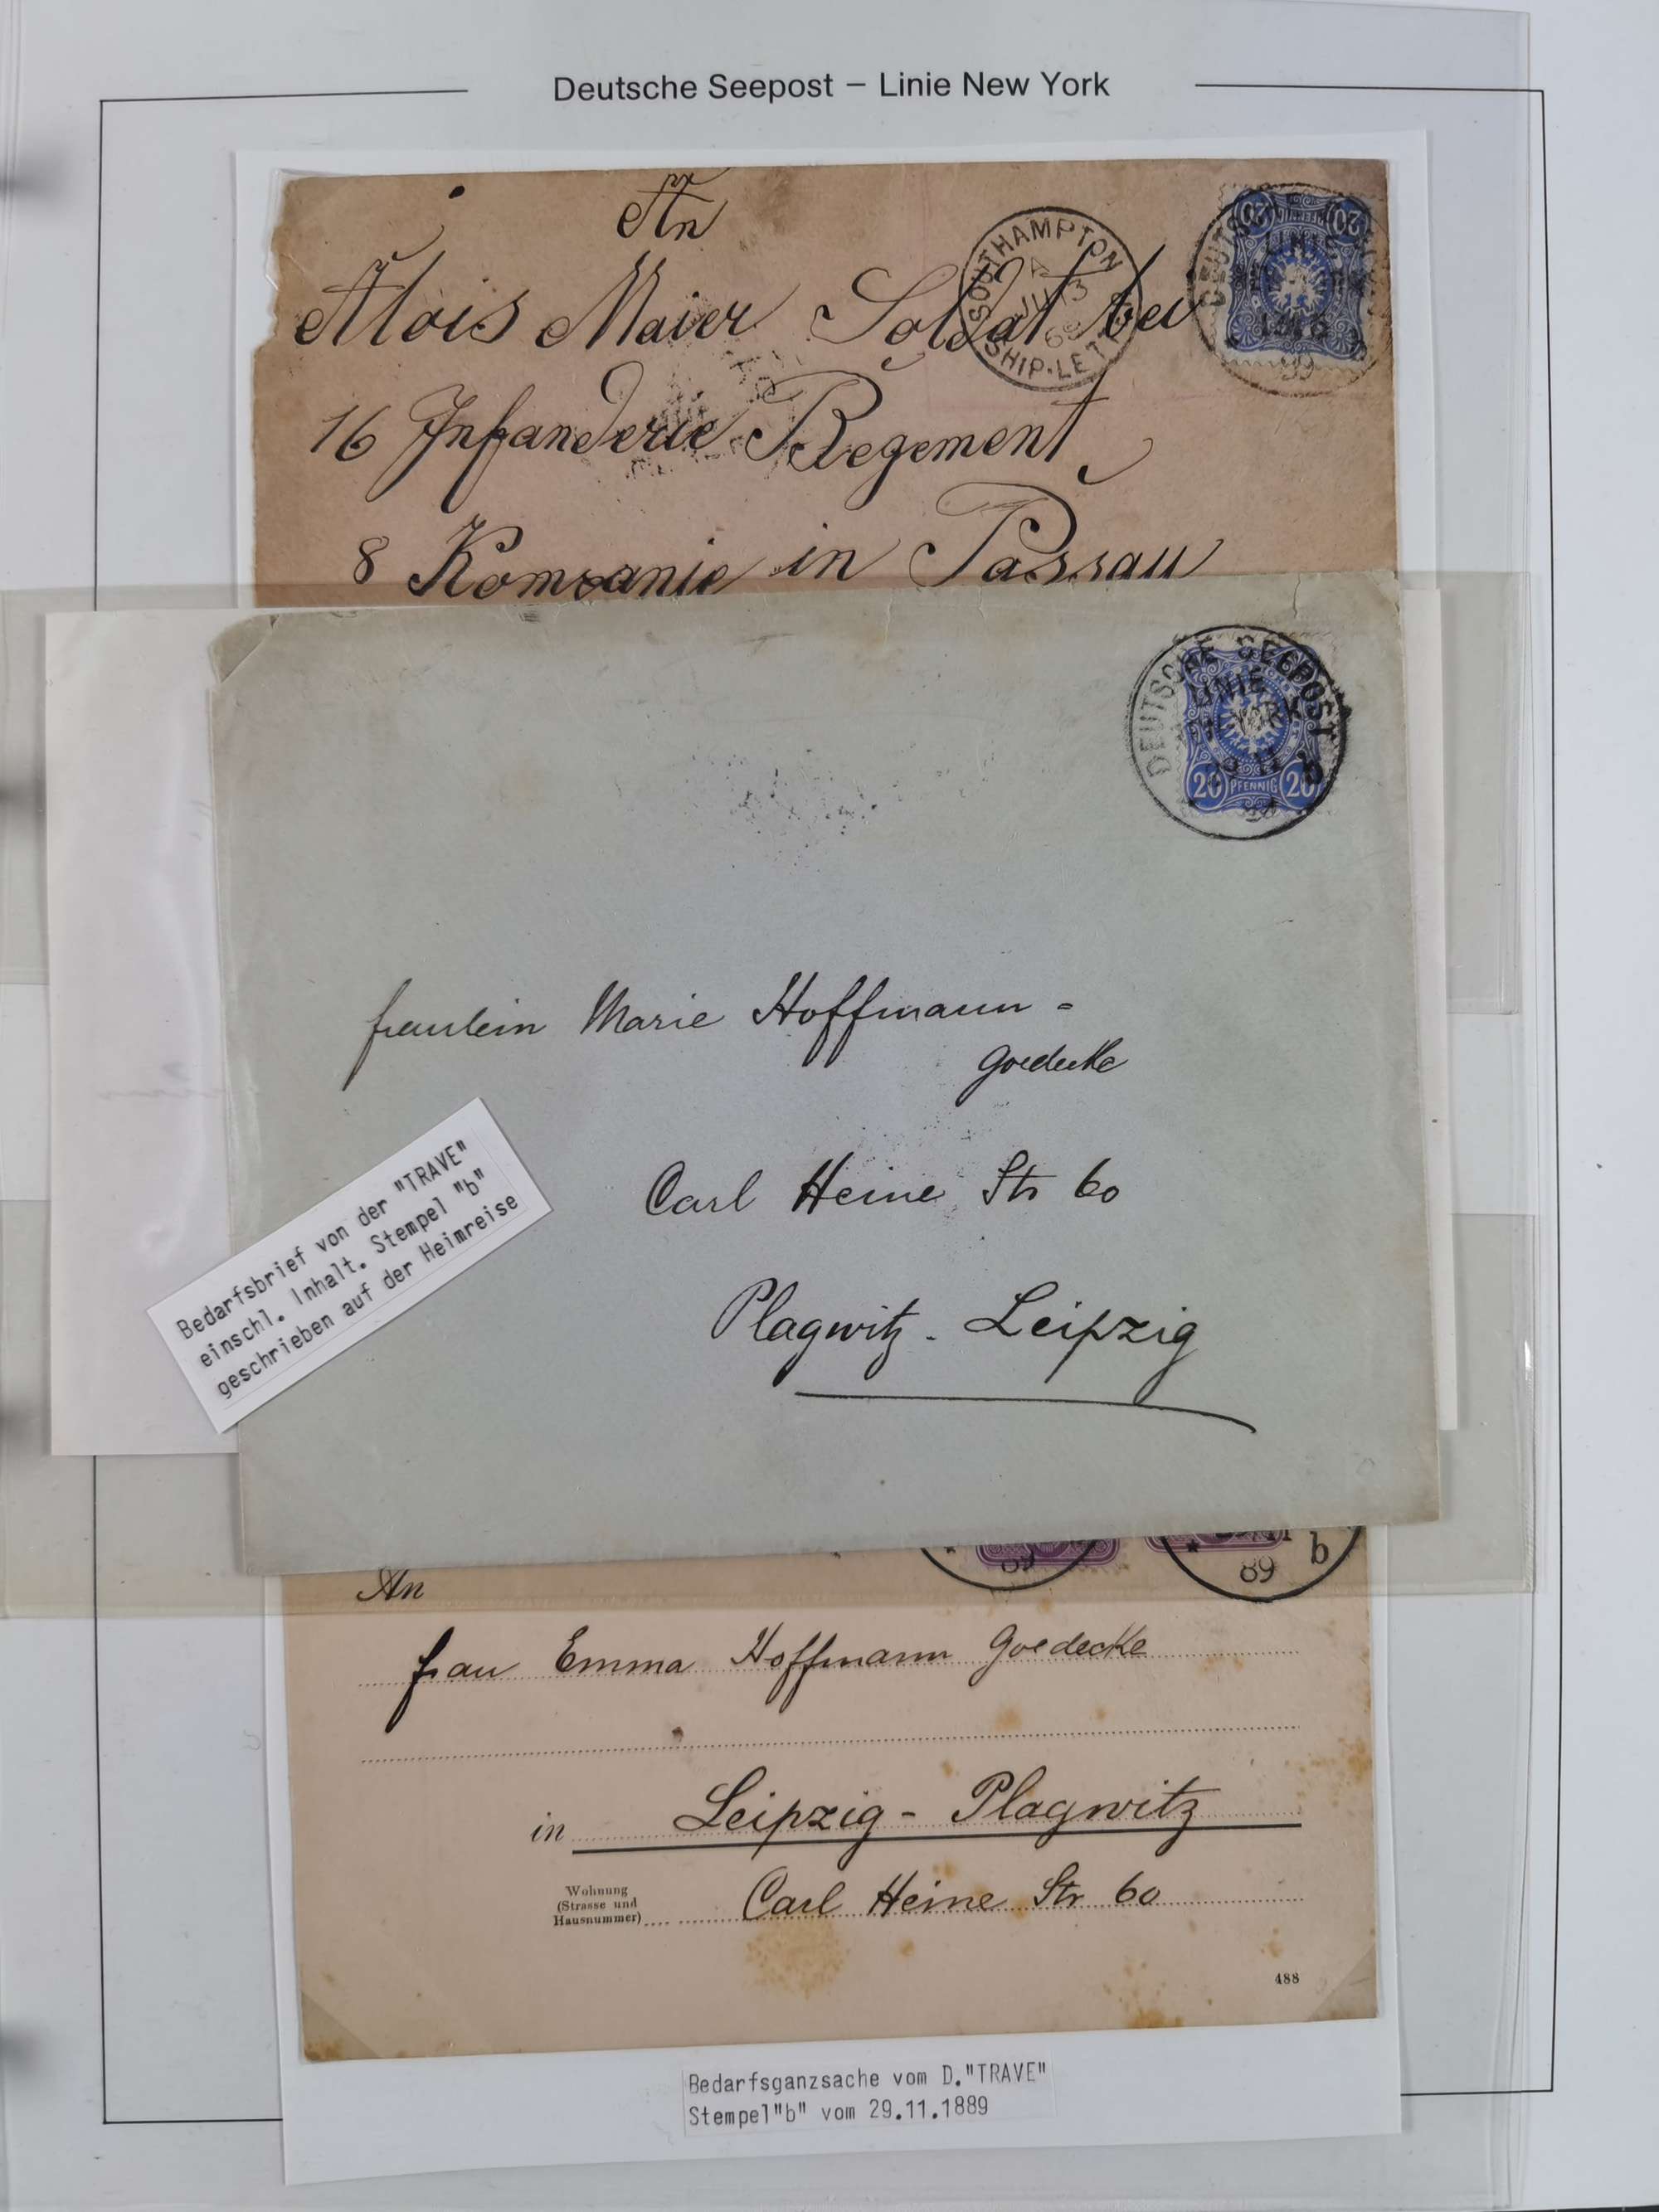 Deutsche Seepost – Linie New York
An
Alois Maier Soldat bei
16 Infanderie Regement
8 Kompanie in Passau
SOUTHAMPTON
A
SHIP-LETTER
20 20
DEUTSCHE SEEPOST
LINIE
20 PFENNIG 20
b
fraulein Marie Hoffmann =
Goedecke
Carl Heine Str 60
Plagwitz - Leipzig
Bedarfsbrief von der "TRAVE"
einschl. Inhalt. Stempel "b"
geschrieben auf der Heimreise
89 b
89
An
frau Emma Hoffmann Goedecke
in Leipzig - Plagwitz
Wohnung
(Strasse und
Hausnummer)
Carl Heine Str 60
488
Bedarfsganzsache vom D."TRAVE"
Stempel"b" vom 29.11.1889